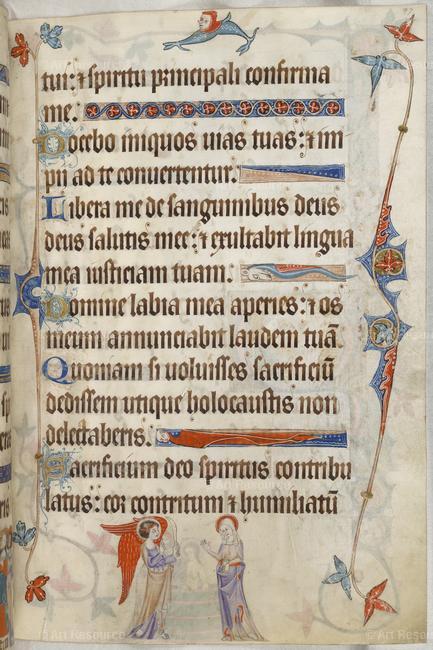 tui: ⁊ spiritu principali confirma
me.
Docebo iniquos uias tuas: ⁊ im
pii ad te conuertentur.
Libera me de sanguinibus deus
deus salutis mee: ⁊ exultabit lingua
mea iusticiam tuam.
Domine labia mea aperies: ⁊ os
meum annunciabit laudem tuā
Quoniam si uoluisses sacrificiū
dedissem utique holocaustis non
delectaberis.
Sacrificium deo spiritus contribu
latus: cor contritum ⁊ humiliatū
© Art Resource
© Art Resource